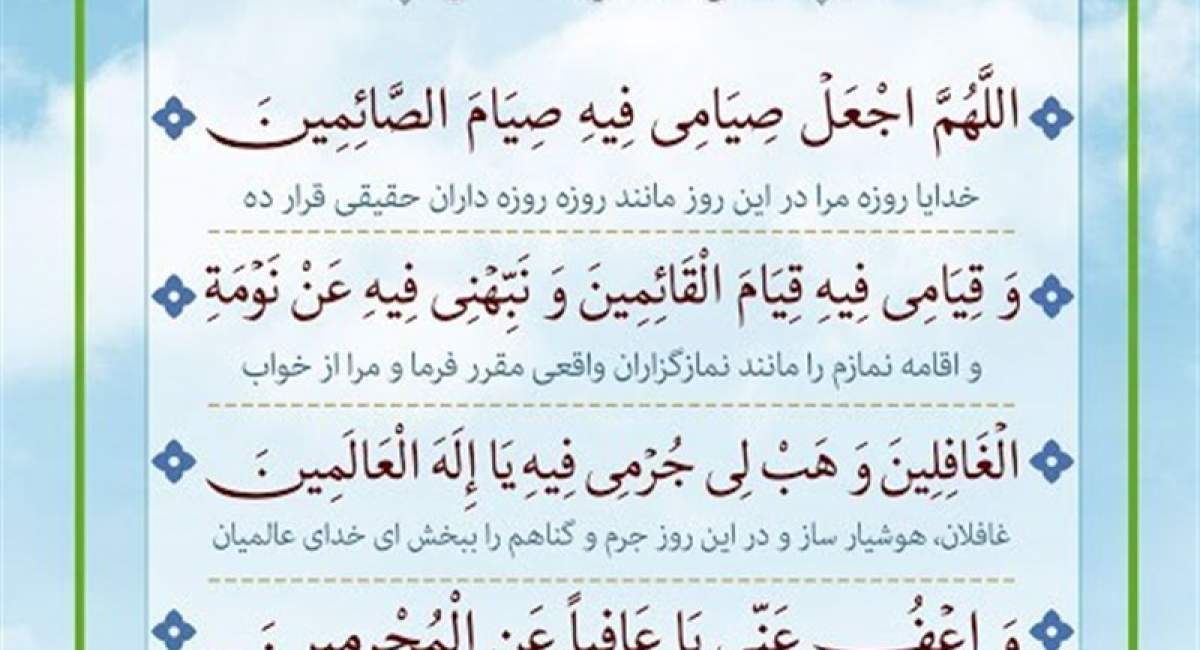 اللَّهُمَّ اجْعَلْ صِيَامِى فِيهِ صِيَامَ الصَّائِمِينَ
خدایا روزه مرا در این روز مانند روزه روزه داران حقیقی قرار ده
وَ قِيَامِى فِيهِ قِيَامَ الْقَائِمِينَ وَ نَبِّهْنِى فِيهِ عَنْ نَوْمَةِ
و اقامه نمازم را مانند نمازگزاران واقعی مقرر فرما و مرا از خواب
الْغَافِلِينَ وَ هَبْ لِى جُرْمِى فِيهِ يَا إِلَهَ الْعَالَمِينَ
غافلان، هوشیار ساز و در این روز جرم و گناهم را ببخش ای خدای عالمیان
وَ اعْفُ عَنِّى يَا عَافِياً عَنِ الْمُجْرِمِينَ